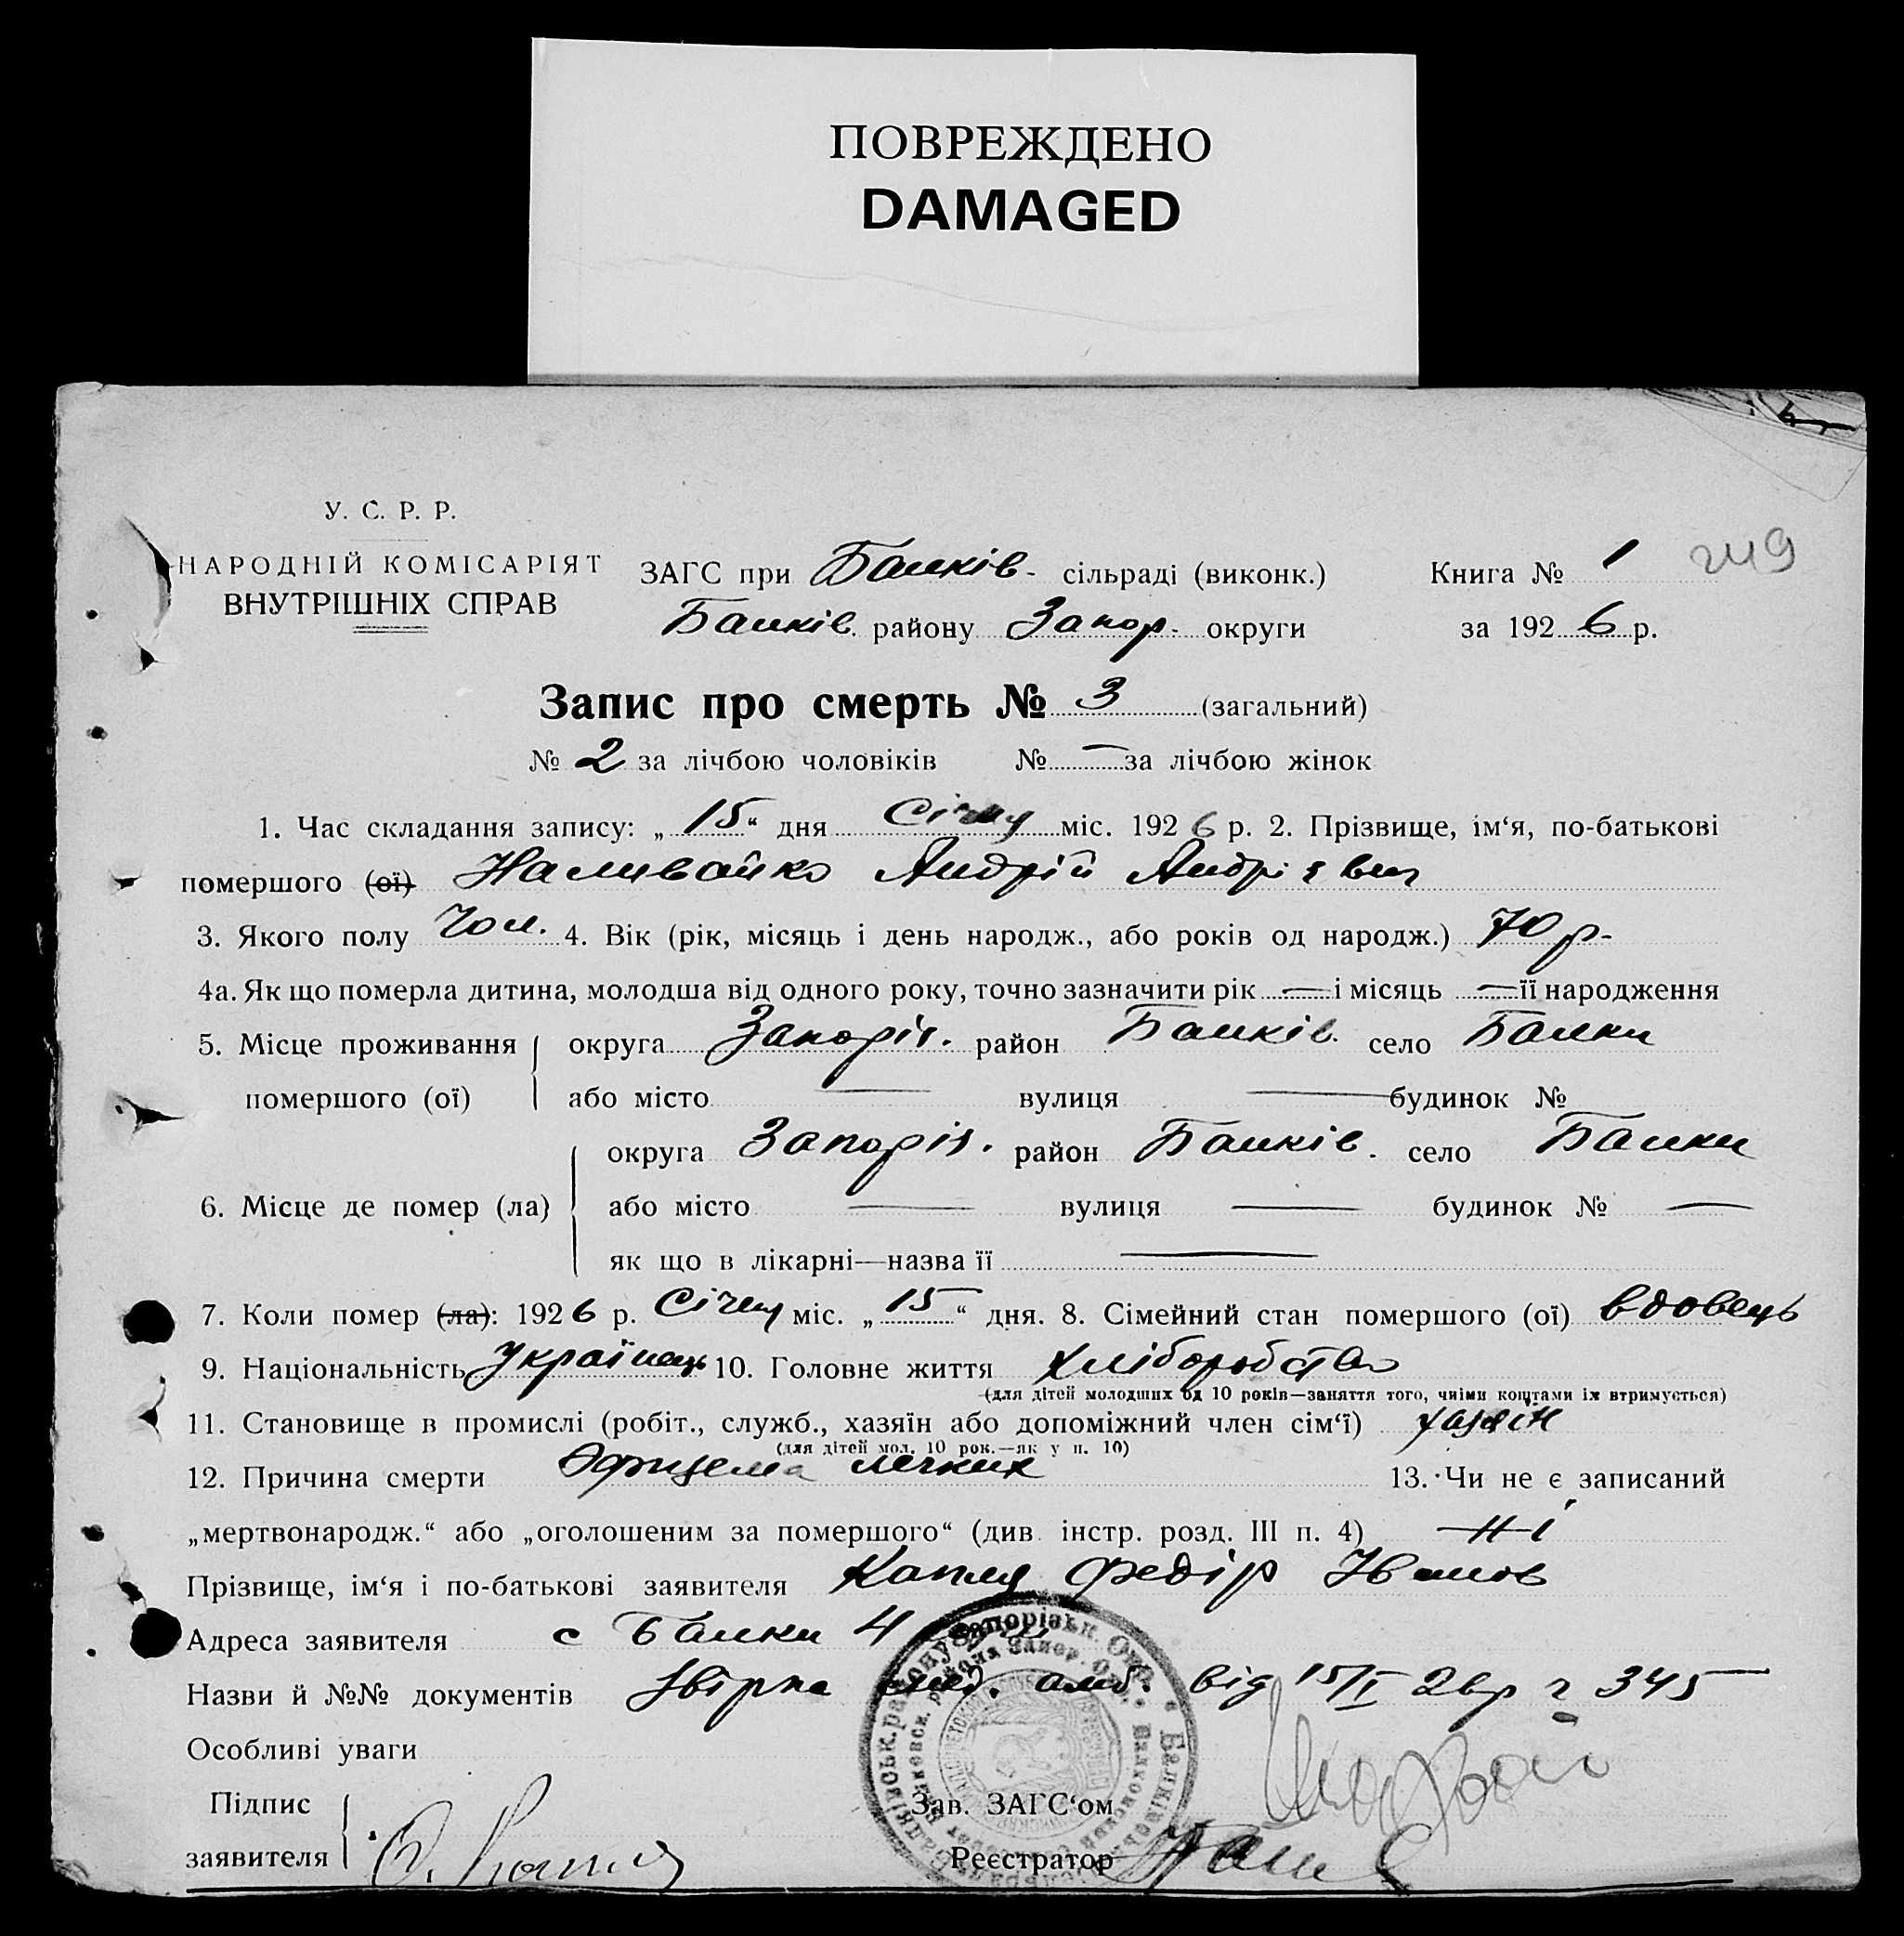 ПОВРЕЖДЕНО
DAMAGED
У. С. Р. Р.
НАРОДНІЙ КОМІСАРІЯТ
ВНУТРІШНІХ СПРАВ
ЗАГС при Балків. сільраді (виконк.) Книга № 1
Балків. району Запор. округи за 1926 р.
Запис про смерть № 3 (загальний)
№ 2 за лічбою чоловіків № — за лічбою жінок
1. Час складання запису: „15“ дня Січня міс. 1926 р. 2. Прізвище, ім‘я, по-батькові
помершого (ої) Наливайко Андрій Андріявич
3. Якого полу чол. 4. Вік (рік, місяць і день народж., або років од народж.) 70 р.
4а. Як що померла дитина, молодша від одного року, точно зазначити рік — і місяць — її народження
5. Місце проживання округа Запоріз. район Балків. село Балки
помершого (ої) або місто — вулиця — будинок №
округа Запоріз. район Балків. село Балки
6. Місце де помер (ла) або місто — вулиця — будинок № —
як що в лікарні—назва її —
7. Коли помер (ла): 1926 р. Січня міс. „15“ дня. 8. Сімейний стан помершого (ої) вдовець
9. Національність Українець 10. Головне життя хліборобство
(для дітей молодших од 10 років—заняття того, чиїми коштами їх втримується)
11. Становище в промислі (робіт., служб., хазяїн або допоміжний член сім‘ї) хазяїн
(для дітей мол. 10 рок.—як у п. 10)
12. Причина смерти Эфизема легких 13. Чи не є записаний
„мертвонародж.“ або „оголошеним за помершого“ (див. інстр. розд. III п. 4) Ні
Прізвище, ім‘я і по-батькові заявителя Капля Федір Иванов
Адреса заявителя с Балки 4
Назви й №№ документів амб. від 15/I 26 р 345
Особливі уваги
Підпис Зав. ЗАГС‘ом
заявителя Реєстратор